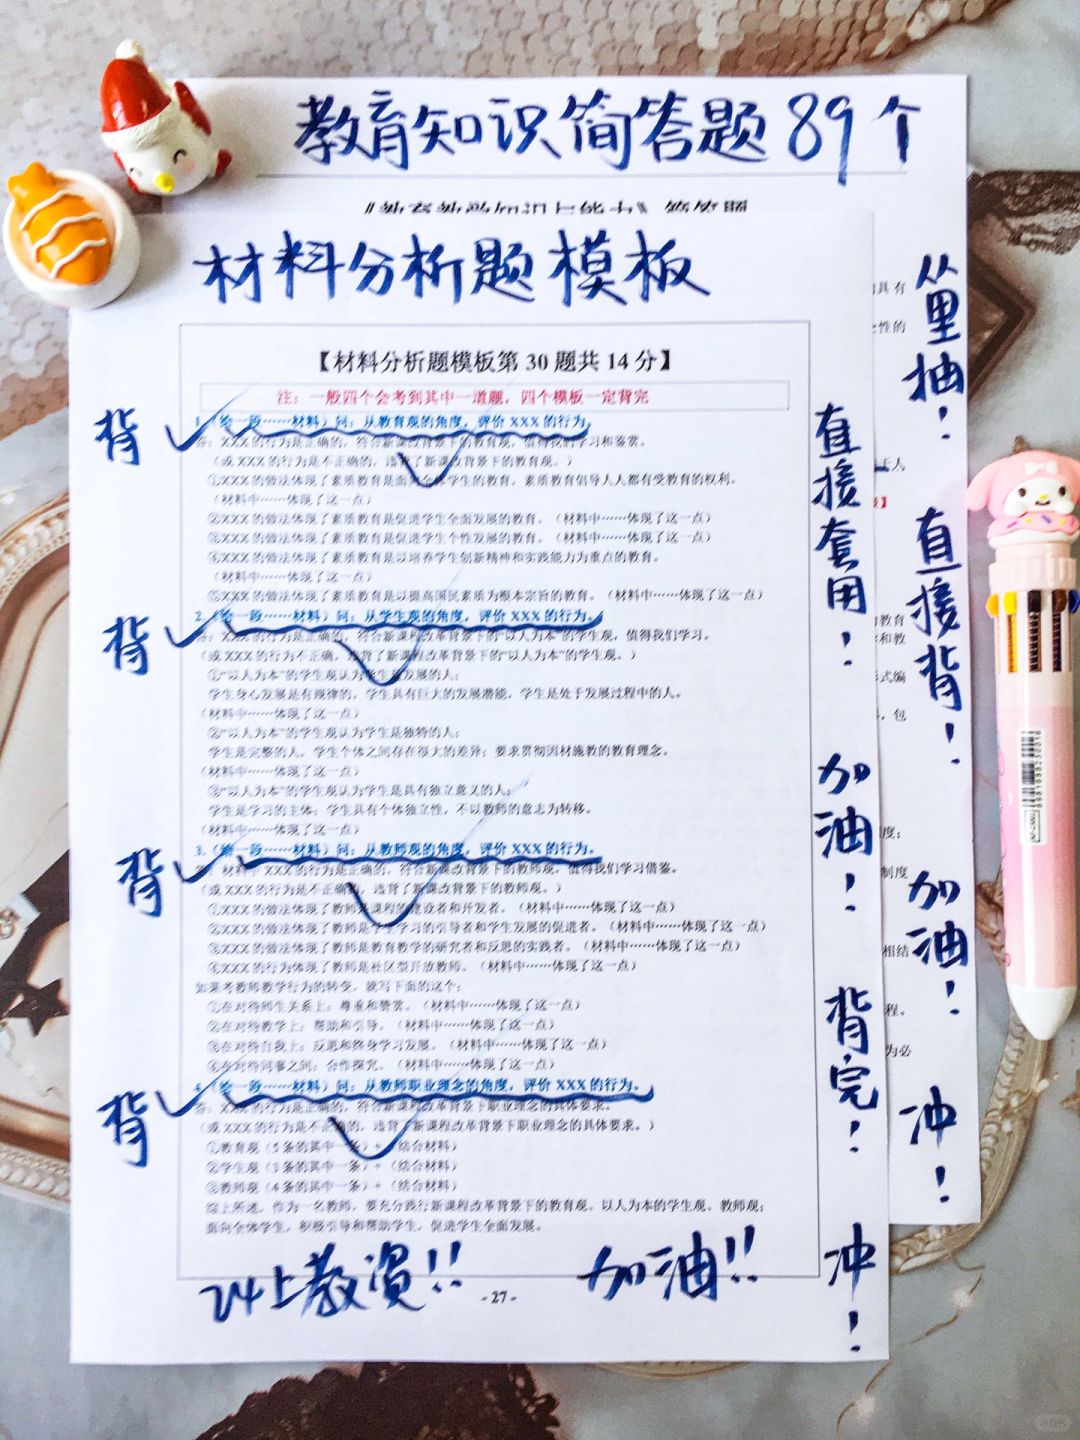 教育知识简答题89个
《教育教学知识与能力》简答题
材料分析题模板
【材料分析题模板第 30 题共 14 分】
注：一般四个会考到其中一道题，四个模板一定背完
背
1.（给一段……材料）问：从教育观的角度，评价 XXX 的行为。
答：XXX 的行为是正确的，符合新课改背景下的教育观，值得我们学习和鉴赏。
（或 XXX 的行为是不正确的，违背了新课改背景下的教育观。）
①XXX 的做法体现了素质教育是面向全体学生的教育，素质教育倡导人人都有受教育的权利。
（材料中……体现了这一点）
②XXX 的做法体现了素质教育是促进学生全面发展的教育。（材料中……体现了这一点）
③XXX 的做法体现了素质教育是促进学生个性发展的教育。（材料中……体现了这一点）
④XXX 的做法体现了素质教育是以培养学生创新精神和实践能力为重点的教育。
（材料中……体现了这一点）
⑤XXX 的做法体现了素质教育是以提高国民素质为根本宗旨的教育。（材料中……体现了这一点）
背
2.（给一段……材料）问：从学生观的角度，评价 XXX 的行为。
答：XXX 的行为是正确的，符合新课程改革背景下的“以人为本”的学生观，值得我们学习。
（或 XXX 的行为不正确，违背了新课程改革背景下的“以人为本”的学生观。）
①“以人为本”的学生观认为学生是发展的人；
学生身心发展是有规律的，学生具有巨大的发展潜能，学生是处于发展过程中的人。
（材料中……体现了这一点）
②“以人为本”的学生观认为学生是独特的人；
学生是完整的人，学生个体之间存在很大的差异；要求贯彻因材施教的教育理念。
（材料中……体现了这一点）
③“以人为本”的学生观认为学生是具有独立意义的人；
学生是学习的主体；学生具有个体独立性，不以教师的意志为转移。
（材料中……体现了这一点）
背
3.（给一段……材料）问：从教师观的角度，评价 XXX 的行为。
答：材料中 XXX 的行为是正确的，符合新课改背景下的教师观，值得我们学习借鉴。
（或 XXX 的行为是不正确的，违背了新课改背景下的教师观。）
①XXX 的做法体现了教师是课程的建设者和开发者。（材料中……体现了这一点）
②XXX 的做法体现了教师是学生学习的引导者和学生发展的促进者。（材料中……体现了这一点）
③XXX 的做法体现了教师是教育教学的研究者和反思的实践者。（材料中……体现了这一点）
④XXX 的行为体现了教师是社区型开放教师。（材料中……体现了这一点）
如果考教师教学行为的转变，就写下面的这个：
①在对待师生关系上：尊重和赞赏。（材料中……体现了这一点）
②在对待教学上：帮助和引导。（材料中……体现了这一点）
③在对待自我上：反思和终身学习发展。（材料中……体现了这一点）
④在对待同事之间：合作探究。（材料中……体现了这一点）
背
4.（给一段……材料）问：从教师职业理念的角度，评价 XXX 的行为。
答：XXX 的行为是正确的，符合新课程改革背景下职业理念的具体要求。
（或 XXX 的行为是不正确的，违背了新课程改革背景下职业理念的具体要求。）
①教育观（5 条的其中一条）+（结合材料）
②学生观（3 条的其中一条）+（结合材料）
③教师观（4 条的其中一条）+（结合材料）
综上所述，作为一名教师，要充分践行新课程改革背景下的教育观、以人为本的学生观、教师观；
面向全体学生，积极引导和帮助学生，促进学生全面发展。
24上教资!! 加油!!
- 27 -
直接套用！
加油！
背完！
冲！
从里抽！
直接背！
加油！
冲！
具有
性的
人
教育
和教
式编
，包
度；
制度
相结
程。
为必
小红书